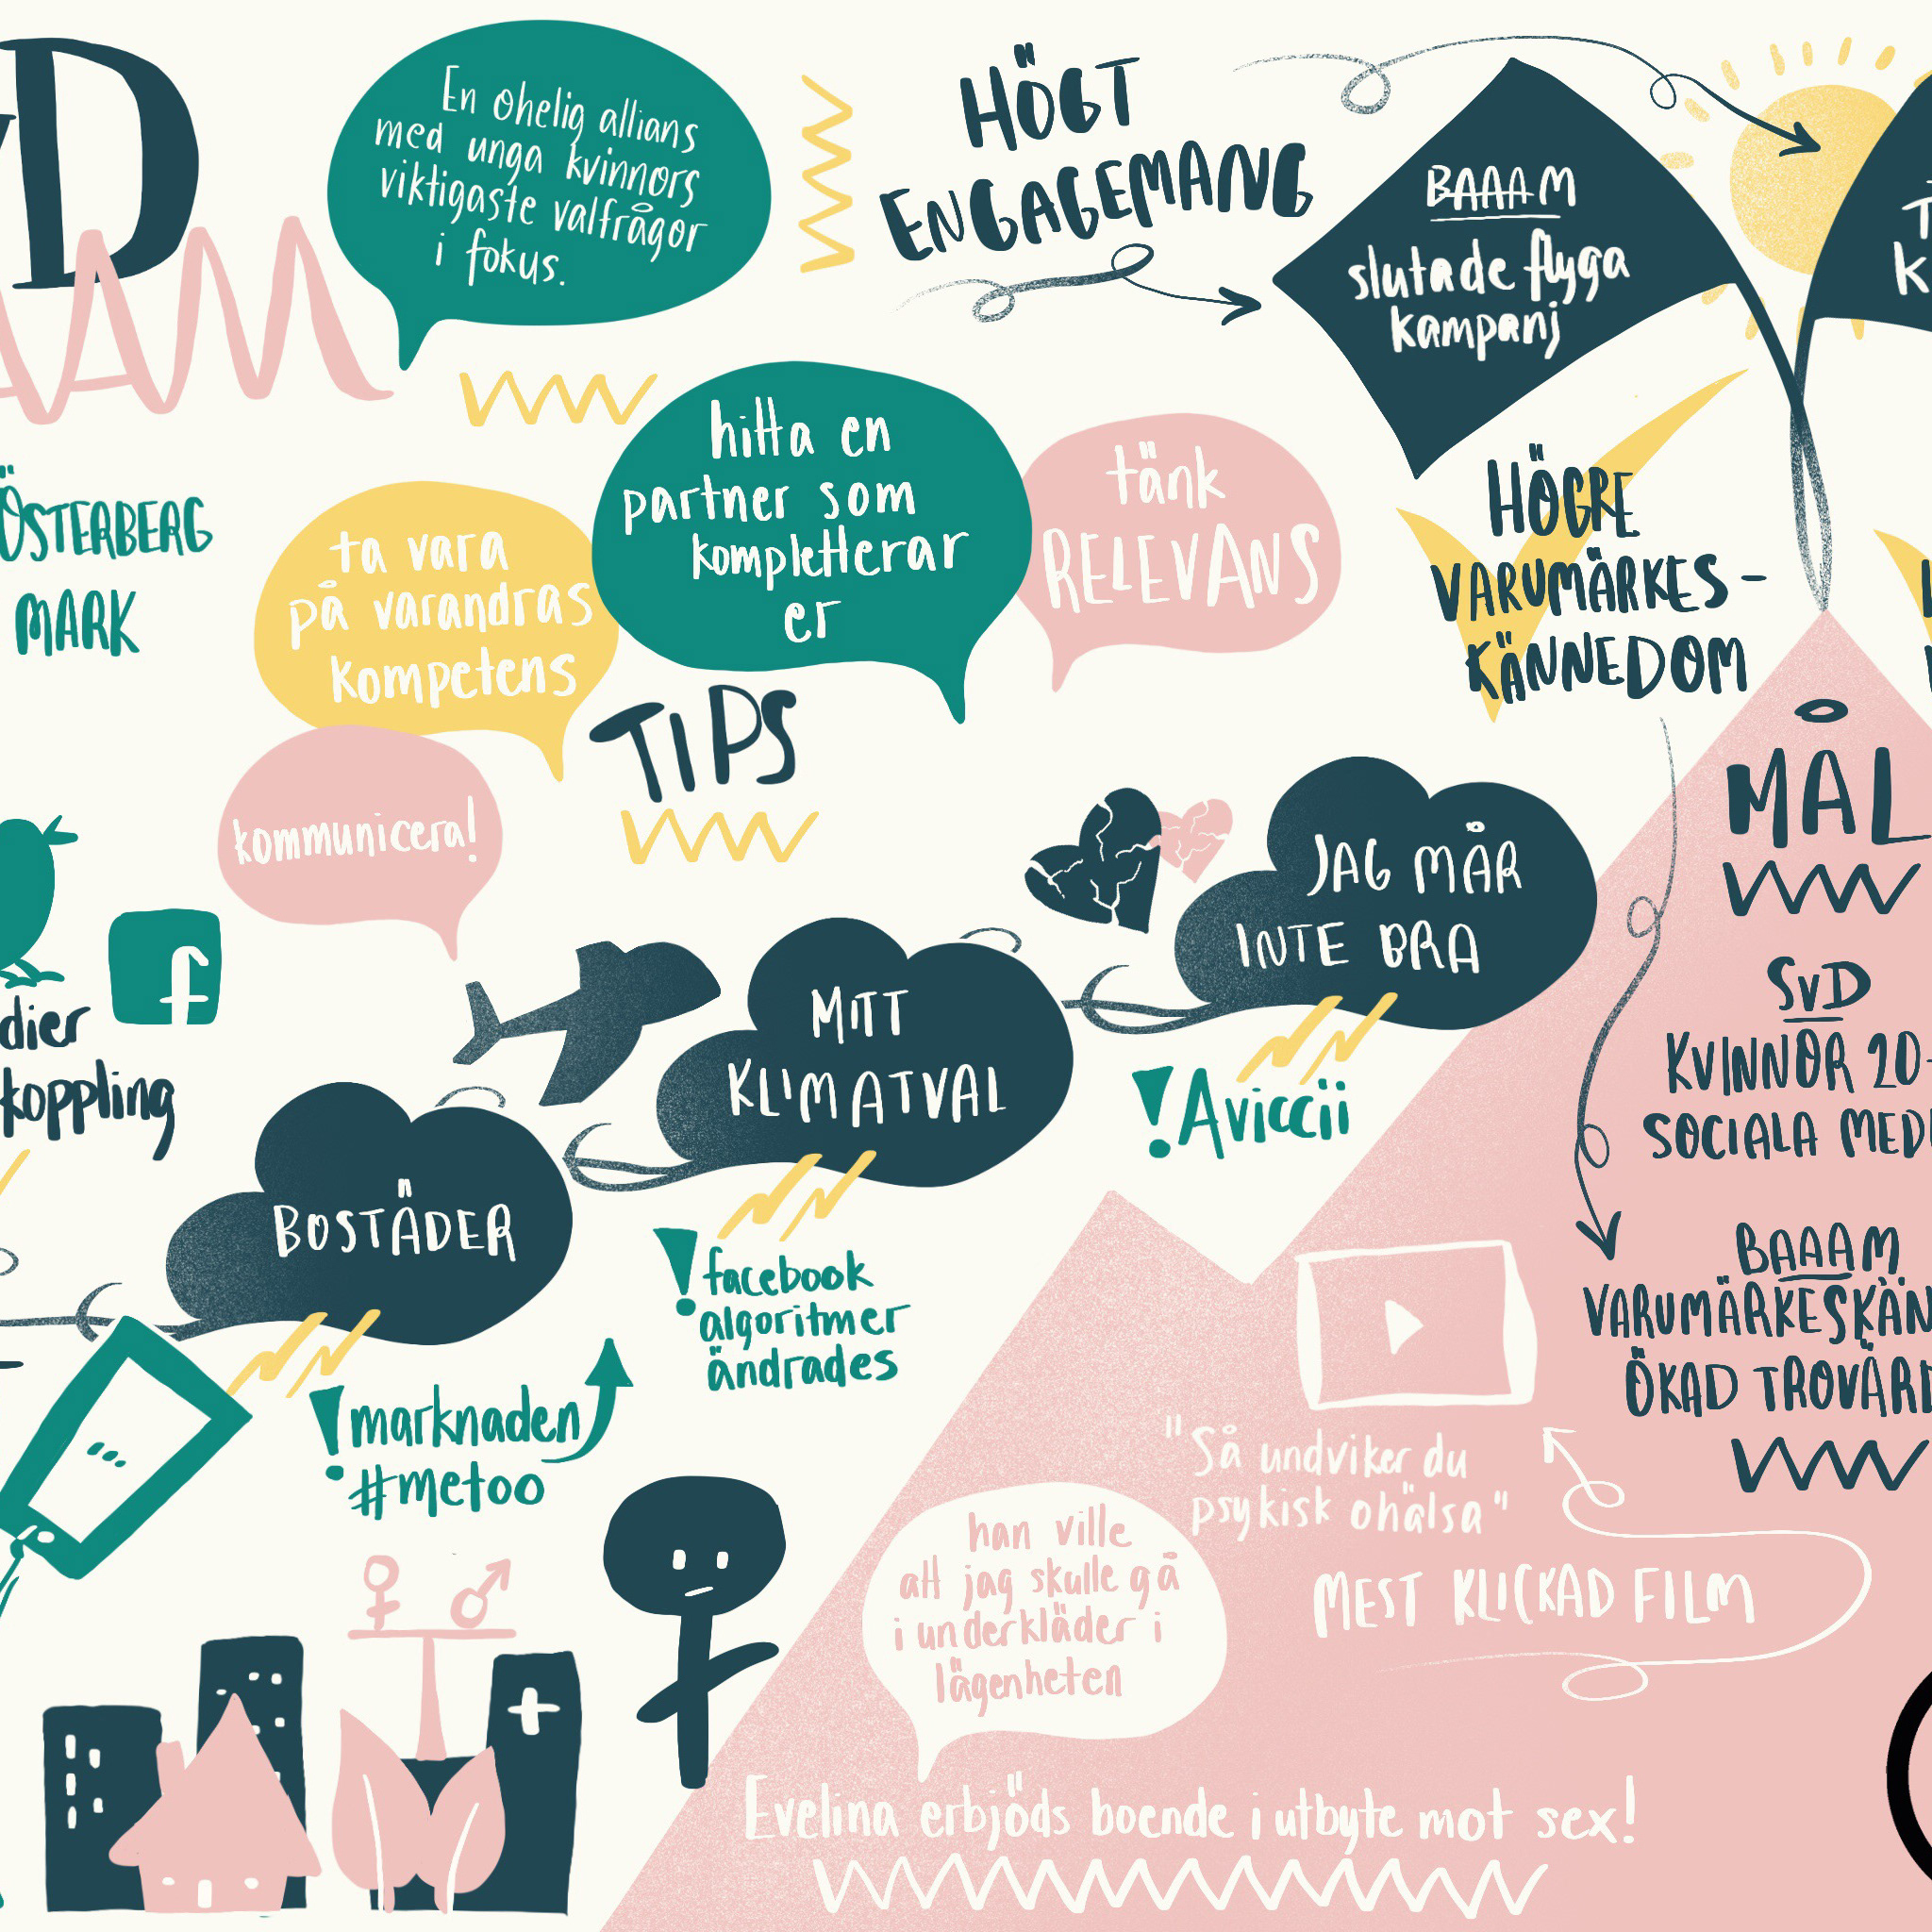 En ohelig allians
med unga kvinnors
viktigaste valfrågor
i fokus.
HÖGT
ENGAGEMANG
BAAAM
slutade flyga
kampanj
ÖSTERBERG
MARK
ta vara
på varandras
kompetens
hitta en
partner som
kompletterar
er
tänk
RELEVANS
kommunicera!
TIPS
HÖGRE
VARUMÄRKES-
KÄNNEDOM
f
koppling
BOSTÄDER
! marknaden
#metoo
MITT
KLIMATVAL
! facebook
algoritmer
ändrades
JAG MÅR
INTE BRA
! Aviccii
MÅL
SvD
KVINNOR 20-
SOCIALA
BAAAM
ÖKAD
"Så undviker du
psykisk ohälsa"
MEST KLICKAD FILM
han ville
att jag skulle gå
i underkläder i
lägenheten
Evelina erbjöds boende i utbyte mot sex!